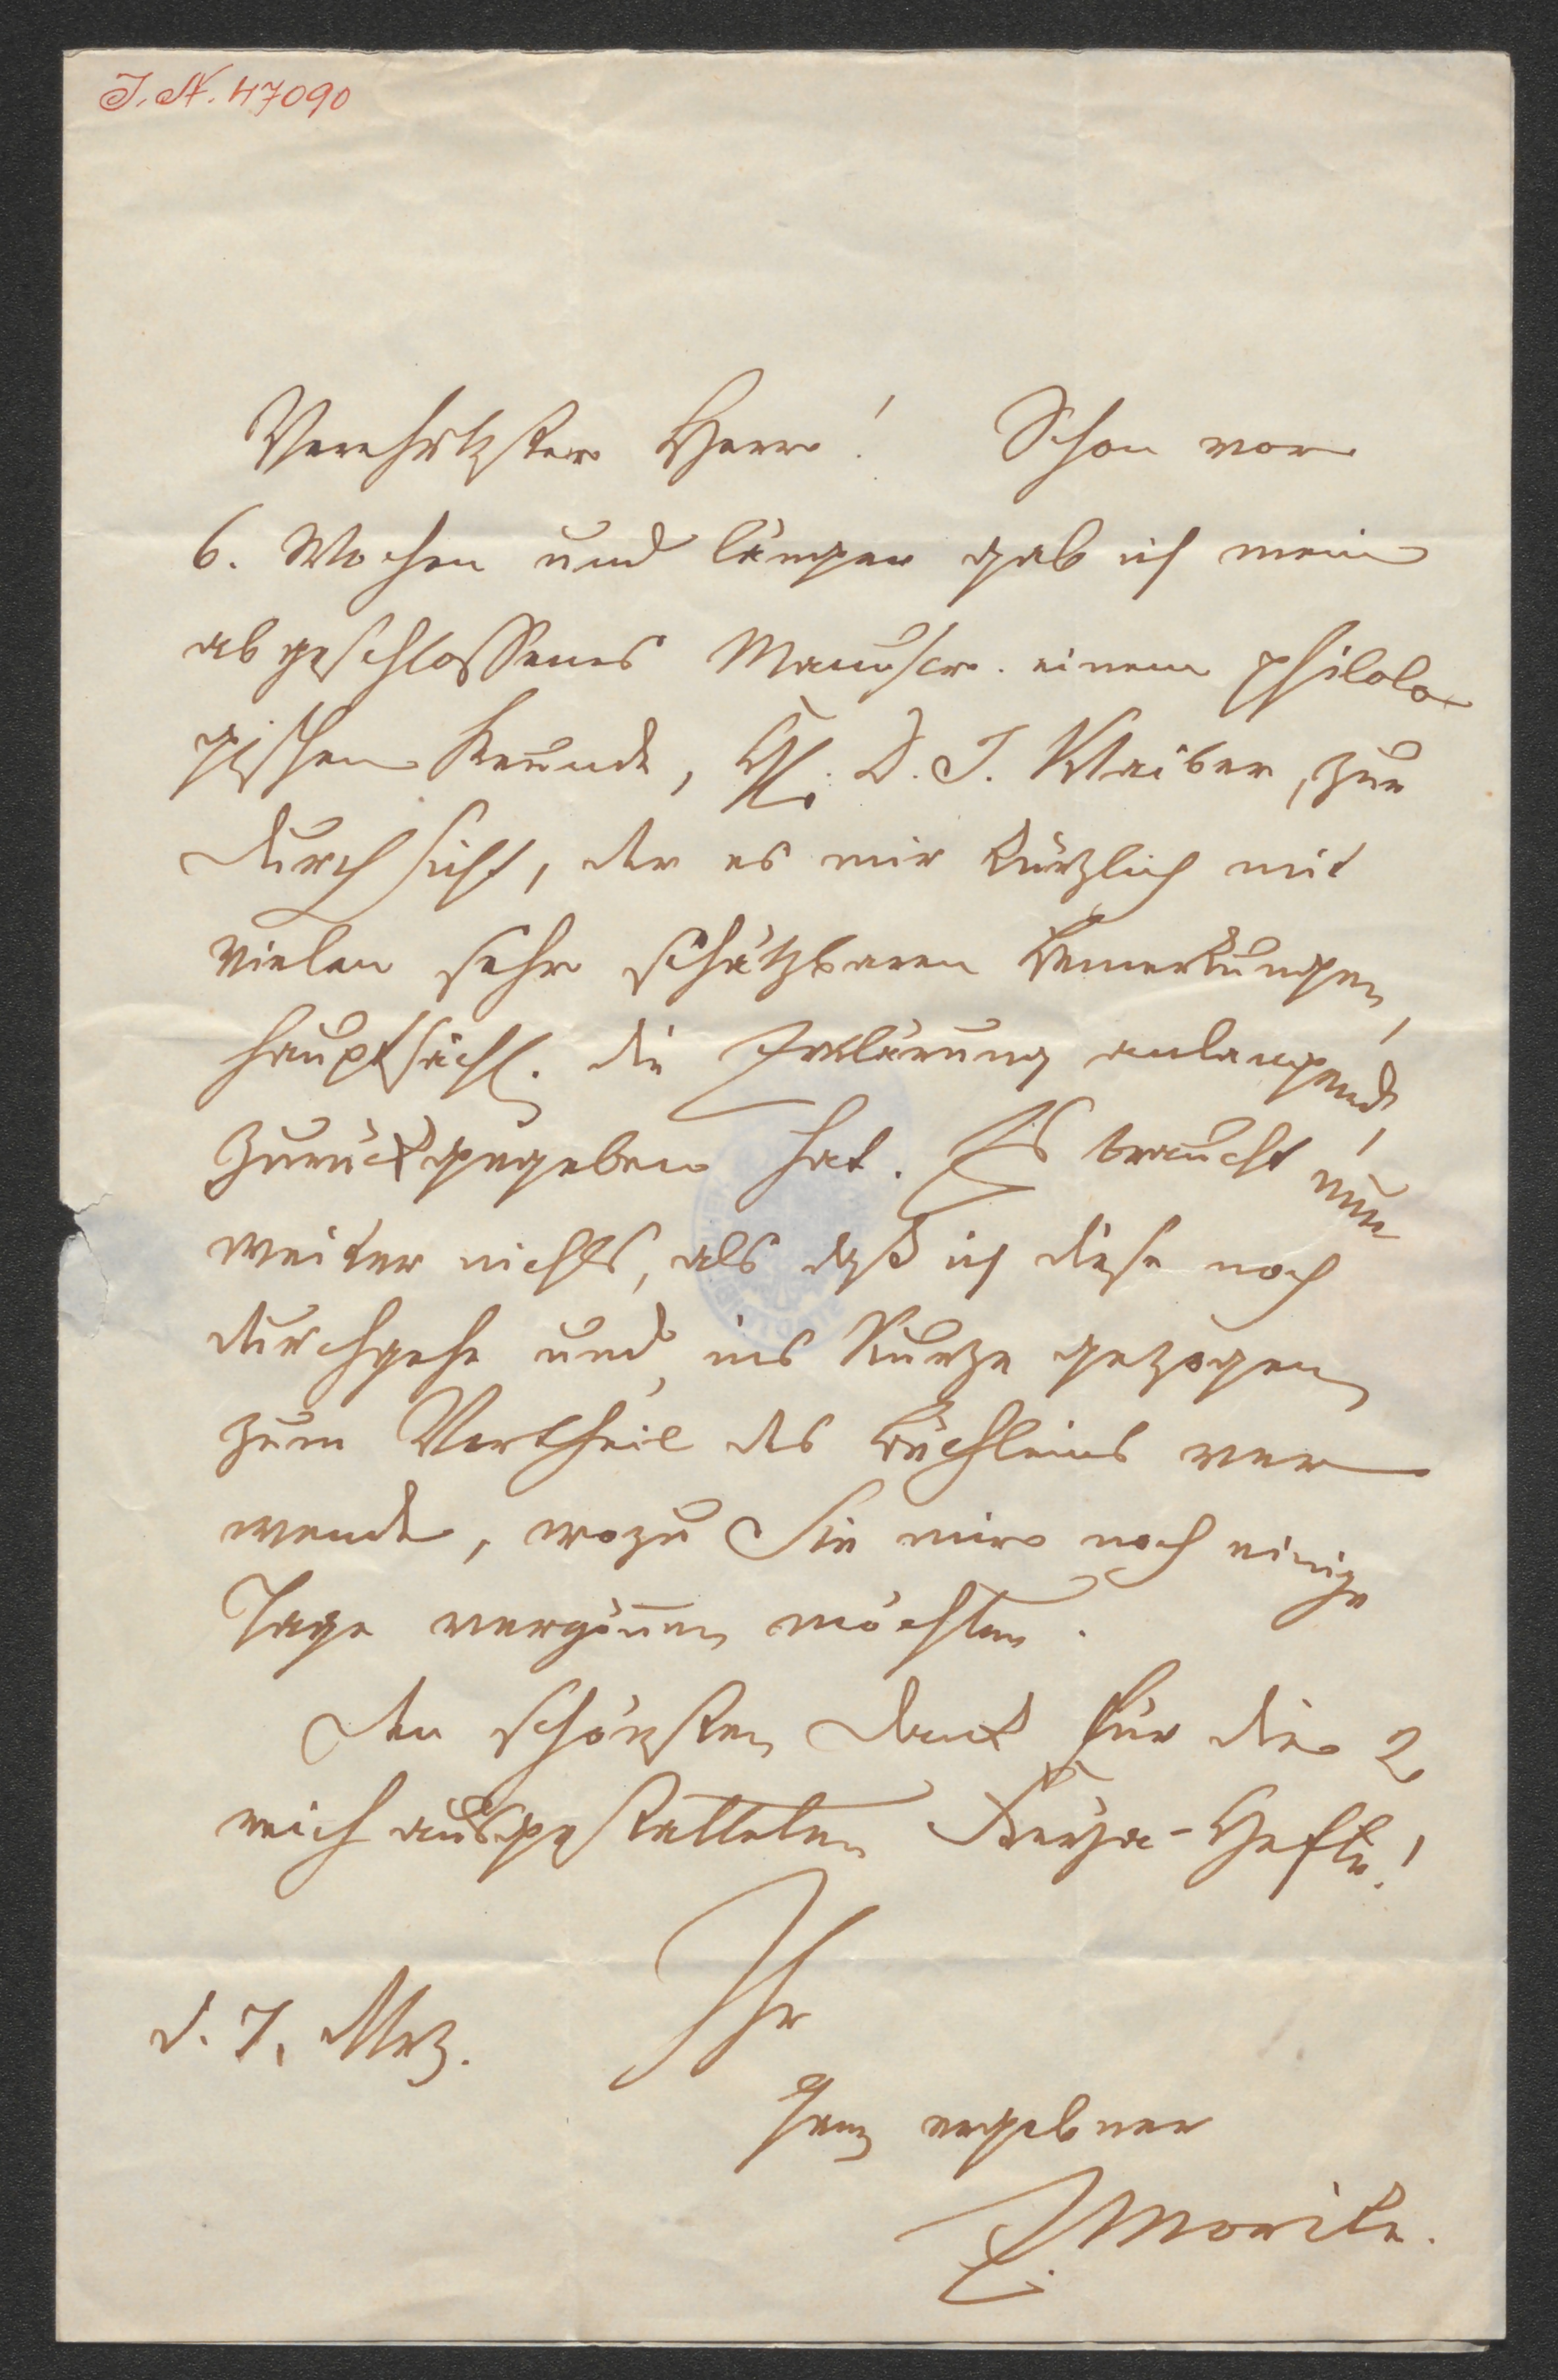 J. N. 47090
Verehrtester Herr! Schon vor
6. Wochen und länger gab ich mein
abgeschlossenes Manuscr. einem philolo
gischen Freunde, H. D. J. Klaiber, zur
Durchsicht, der es mir kürzlich mit
vielen sehr schätzbaren Bemerkungen,
hauptsächl. die Erklärung anlangend,
zurückgegeben hat. Es braucht nun
weiter nichts, als daß ich diese noch
durchgehe und, ins Kurze gezogen
zum Vortheil des Büchleins ver
wende, wozu Sie mir noch einige
Tage vergönnen möchten.
Den schönsten Dank für die 2
reich ausgestatteten Freya-Hefte!
Ihr
d. 7. Mrz.
ganz ergebner
E. Mörike.